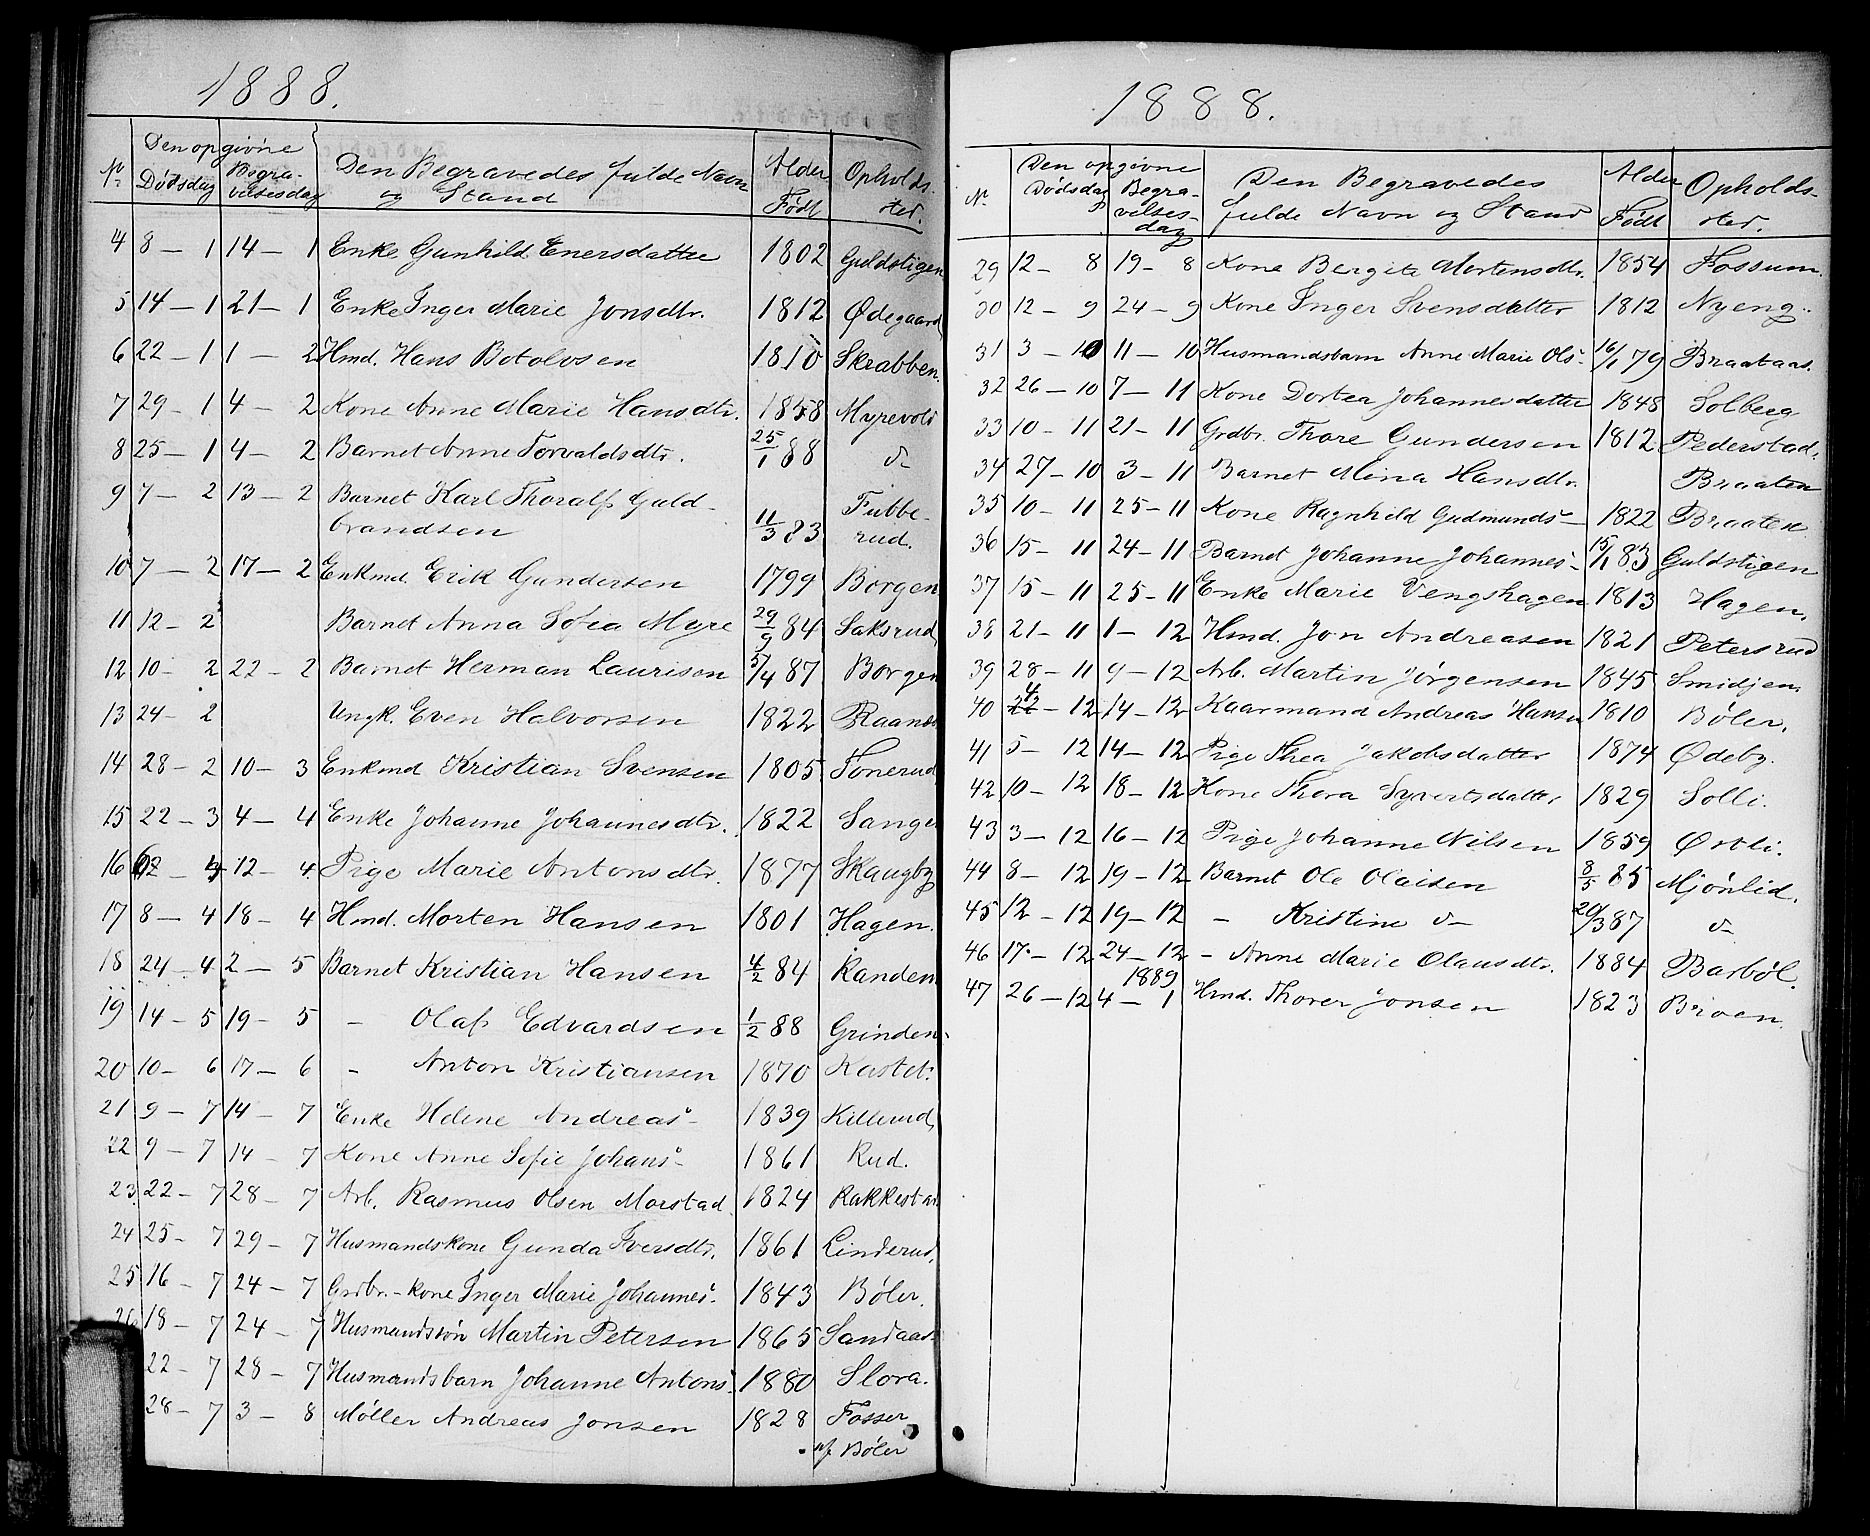 1888.
Den opgivne
Nr. Dødsdag Begravelsesdag Den Begravedes fulde Navn og Stand Alder Født Opholdssted.
4 8 - 1 14 - 1 Enke Gunhild Enersdatter 1802 Guldstigen
5 14 - 1 21 - 1 Enke Inger Marie Jonsdtr. 1812 Ødegaard
6 22 - 1 1 - 2 Hmd. Hans Botolvsen 1810 Skrabben.
7 29 - 1 4 - 2 Kone Anne Marie Hansdtr. 1858 Myrevold
8 25 - 1 4 - 2 Barnet Anne Torvaldsdtr. 25/1 88 d-
9 7 - 2 13 - 2 Barnet Karl Thoralf Guld-
brandsen 11/3 83 Fubberud.
10 7 - 2 17 - 2 Enkmd. Erik Gundersen 1799 Borgen
11 12 - 2 Barnet Anna Sofia Myre 29/9 84 Saksrud
12 10 - 2 22 - 2 Barnet Herman Laurisen 5/4 87 Borgen
13 24 - 2 Ungk. Even Halvorsen 1822
14 28 - 2 10 - 3 Enkmd Kristian Svensen 1805 Tonerud
15 22 - 3 4 - 4 Enke Johanne Johannesdtr. 1822
16 4 12 - 4 Pige Marie Antonsdtr. 1877 Skaugby
17 8 - 4 18 - 4 Hmd. Morten Hansen 1801 Hagen.
18 24 - 4 2 - 5 Barnet Kristian Hansen 4/2 84 Randem
19 14 - 5 19 - 5 - Olaf Edvardsen 1/2 88 Grinden
20 10 - 6 17 - 6 - Anton Kristiansen 1870 Kastet.
21 9 - 7 14 - 7 Enke Helene Andreas- 1839 Killerud,
22 9 - 7 14 - 7 Kone Anne Sofie Johans- 1861 Rud.
23 22 - 7 28 - 7 Arb. Rasmus Olsen Morstad 1824 Rakkestad
24 25 - 7 29 - 7 Husmandskone Gunda Iversdtr. 1861 Linderud,
25 16 - 7 24 - 7 Grdbr.-kone Inger Marie Johannes- 1843 Bøler.
26 18 - 7 24 - 7 Husmandssøn Martin Petersen 1865 Sandaas
22 - 7 28 - 7 Husmandsbarn Johanne Antons- 1880 Slora.
28 - 7 3 - 8 Møller Andreas Jonsen 1828 Fosser
af Bøler
1888.
Den opgivne
Nr. Dødsdag Begravelsesdag Den Begravedes fulde Navn og Stand Alder Født Opholdssted.
29 12 - 8 19 - 8 Kone Bergite Mortensdtr. 1854 Fossum.
30 12 - 9 24 - 9 Kone Inger Svensdatter 1812 Nyeng.
31 3 - 10 11 - 10 Husmandsbarn Anne Marie Ols- 16/1 79 Braataas.
32 26 - 10 7 - 11 Kone Dortea Johannesdatter 1848 Solberg
33 10 - 11 21 - 11 Grdbr. Thore Gundersen 1812 Pederstad.
34 27 - 10 3 - 11 Barnet Mina Hansdtr. Braaten
35 10 - 11 25 - 11 Kone Ragnhild Gudmunds- 1822 Braaten
36 15 - 11 24 - 11 Barnet Johanne Johannes- 15/1 83 Guldstigen
37 15 - 11 25 - 11 Enke Marie Vengshagen 1813 Hagen.
38 21 - 11 1 - 12 Hmd. Jon Andreasen 1821 Petersrud
39 28 - 11 9 - 12 Arb. Martin Jørgensen 1845 Smidjen.
40 4 - 12 14 - 12 Kaarmand Andreas Hansen 1810 Bøler.
41 5 - 12 14 - 12 Pige Thea Jakobsdatter 1874 Ødeby.
42 10 - 12 18 - 12 Kone Thora Syvertsdatter 1829 Solli.
43 3 - 12 16 - 12 Pige Johanne Nilsen 1859 Østli.
44 8 - 12 19 - 12 Barnet Ole Olaisen 8/5 85 Mjønlid.
45 12 - 12 19 - 12 - Kristine d- 20/3 87 d-
46 17 - 12 24 - 12 - Anne Marie Olausdtr. 1884 Barbøl.
47 26 - 12 4 - 1 1889 Hmd. Thorer Jonsen 1823 Broen.